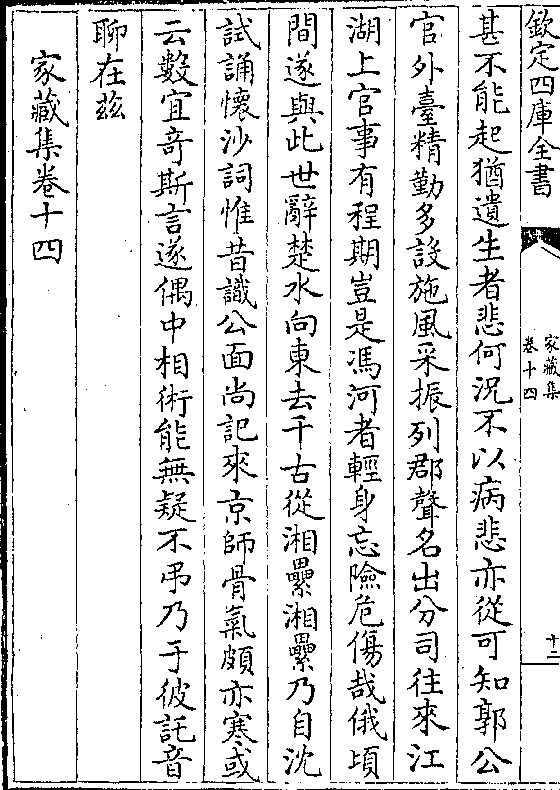 欽定四庫全書
家藏集
卷十四
十二
甚不能起猶遺生者悲何況不以病悲亦從可知郭公
官外臺精勤多設施風采振列郡聲名出分司往來江
湖上官事有程期豈是馮河者輕身忘險危傷哉俄頃
間遂與此世辭楚水向東去千古從湘纍湘纍乃自沈
試誦懷沙詞惟昔識公面尚記來京師骨氣頗亦寒或
云數宜奇斯言遂偶中相術能無疑不弔乃于彼託音
聊在兹
家藏集卷十四